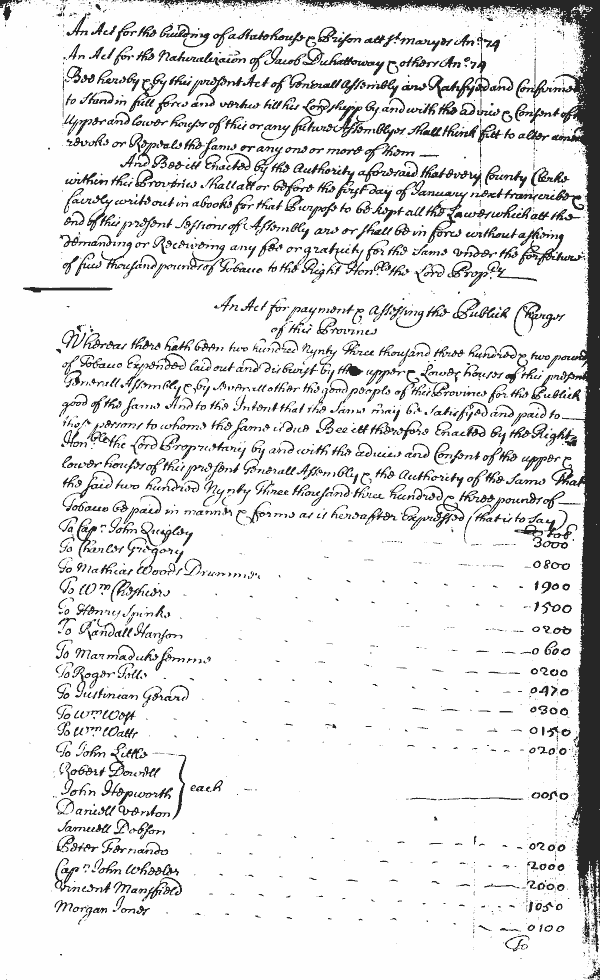 An Act for the building of a Statehouse & Prison att St maryes Ano 74
An Act for the Naturalizacon of Jacob Duhattoway & others Ano 74
Bee hereby & by this present Act of Generall Assembly are Ratifyed and Confirmed
to Stand in full force and vertue till his Lordshipp by and with the advice & Consent of
Upper and lower houses of this or any future Assemblyes shall think fitt to alter
revoke or Repeale the same or any one or more of them
And Bee itt Enacted by the Authority aforesaid that every County Clarke
within this Province Shall att or before the first day of January next transcribe &
fairely write out in a booke for that Purpose to be kept all the Lawes which att the
end of this present Sessions of Assembly are or shall be in force without asking
demanding or Receiveing any fee or gratuity for the Same under the forfeiture
of five thousand pounds of Tobaco to the Right Honble the Lord Propry
An Act for payment & Assessing the Publick Charges
of this Province
Whereas there hath been two hundred Nynty Three thousand three hundred & two pounds
of Tobaco Expended laid out and disburst by the upper & Lower houses of this present
Generall Assembly & by severall other the good people of this Province for the Publick
good of the Same And to the Intent that the Same may be Satisfyed and paid to
those persons to whome the same is due Bee itt therefore Enacted by the Right
Honble the Lord Proprietary by and with the advice and Consent of the upper &
lower houses of this present Generall Assembly & the Authority of the Same That
the said two hundred Nynty Three thousand three hundred & three pounds of
Tobaco be paid in manner & forme as is hereafter Expressed (that is to say)
To Capn John Quigley 3000
To Charles Gregory 0800
To Mathias Woods Drummer 1900
To Wm Cheshiere 1500
To Henry Spinke 0200
To Randall Hanson 0600
To Marmaduke Semme 0200
To Roger Tolle 0470
To Justinian Gerard 0300
To Wm West 0150
To Wm Watts 0200
To John Little
Robert Dowell
John Hepworth each 0050
Daniell Venton
Samuell Dobson 0200
Peter Fernando 2000
Capn John Wheeler 2000
Vincent Mansfield 1050
Morgan Jones 0100
To